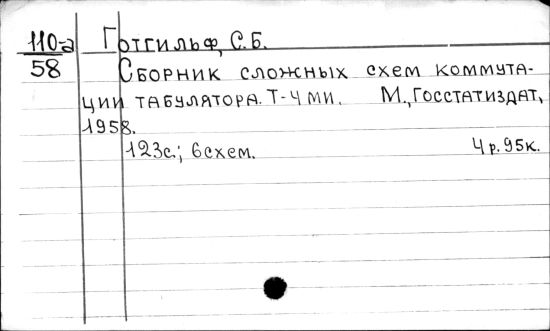 110-а Готгильф, С.Б.
58 Сборник сложных схем коммута-
ции табулятора. Т-4 МИ. М., Госстатиздат,
1958.
123с.; 6 схем. 4 р. 95 к.